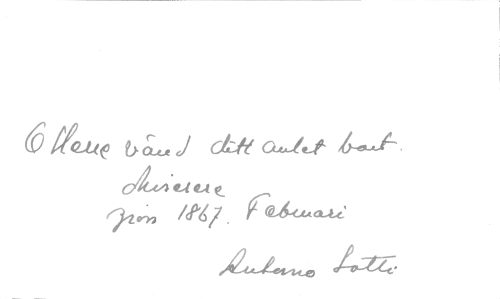 O Herre vänd ditt anlet bort.
Miserere
 1867. Februari
Antonio Lotti